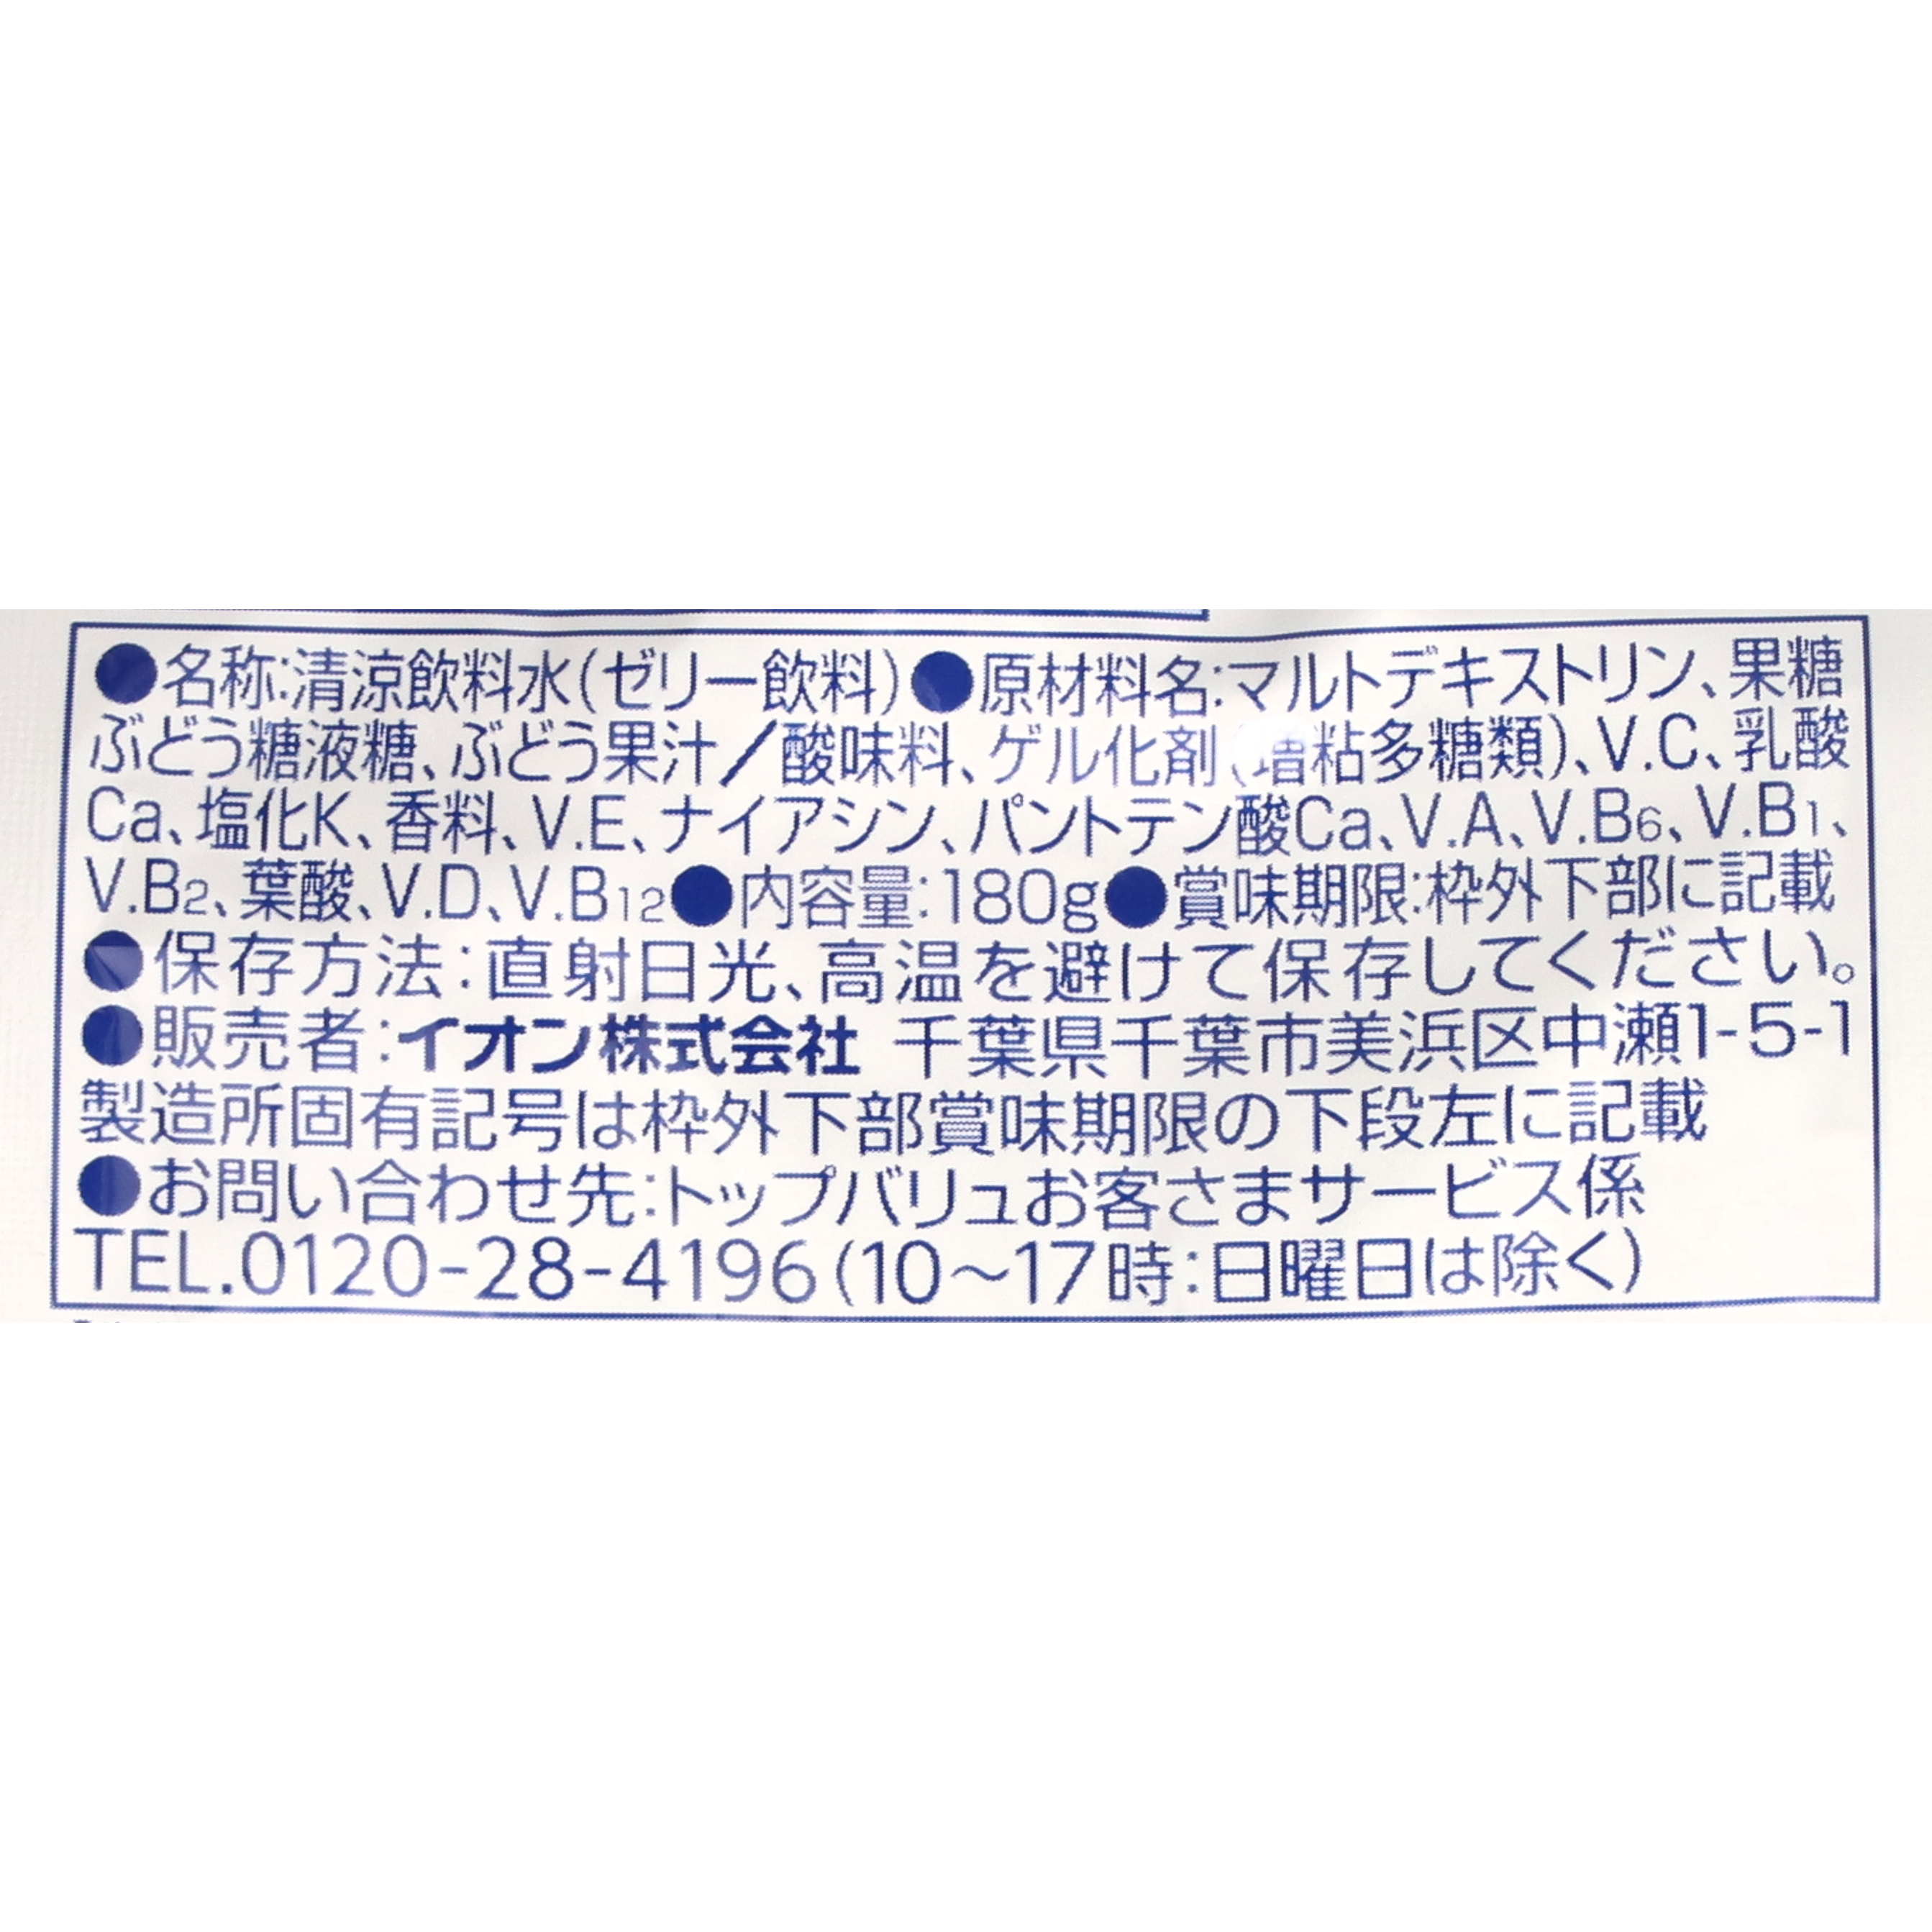 ●名称:清涼飲料水(ゼリー飲料)●原材料名:マルトデキストリン、果糖
ぶどう糖液糖、ぶどう果汁/酸味料、ゲル化剤(増粘多糖類)、V.C、乳酸
Ca、塩化K、香料、V.E、ナイアシン、パントテン酸Ca、V.A、V.B6、V.B1、
V.B2、葉酸、V.D、V.B12●内容量:180g●賞味期限:枠外下部に記載
●保存方法:直射日光、高温を避けて保存してください。
●販売者:イオン株式会社 千葉県千葉市美浜区中瀬1-5-1
製造所固有記号は枠外下部賞味期限の下段左に記載
●お問い合わせ先:トップバリュお客さまサービス係
TEL.0120-28-4196(10〜17時:日曜日は除く)